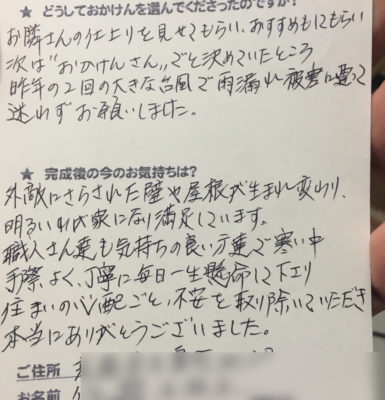 ★ どうしておかけんを選んでくださったのですか?
お隣さんの仕上りを見せてもらい、おすすめもにもらい
次は"おかけんさん"ごと決めていたところ
昨年の2回の大きな台風で雨漏れ被害に遭って
迷わずお願いしました。
★ 完成後の今のお気持ちは?
外敵にさらされた壁や屋根が生まれ変わり、
明るいわが家になり満足しています。
職人さん達も気持ちの良い方達で寒い中
手際よく、丁寧に毎日一生懸命して下さり
住まいの心配ごと、不安を取り除いていただき
本当にありがとうございました。
ご住所
お名前